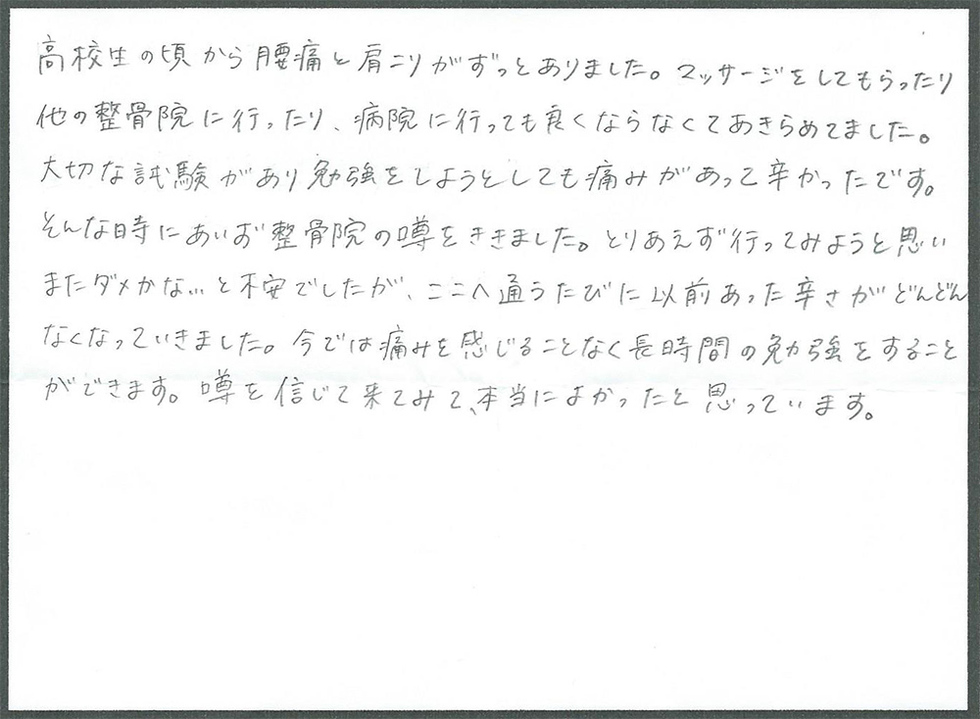 高校生の頃から腰痛と肩こりがずっとありました。マッサージをしてもらったり
他の整骨院に行ったり、病院に行っても良くならなくてあきらめてました。
大切な試験があり勉強をしようとしても痛みがあって辛かったです。
そんな時にあいおい整骨院の噂をききました。とりあえず行ってみようと思い
またダメかな…と不安でしたが、ここへ通うたびに以前あった辛さがどんどん
なくなっていきました。今では痛みを感じることなく長時間の勉強をすること
ができます。噂を信じて来てみて、本当によかったと思っています。